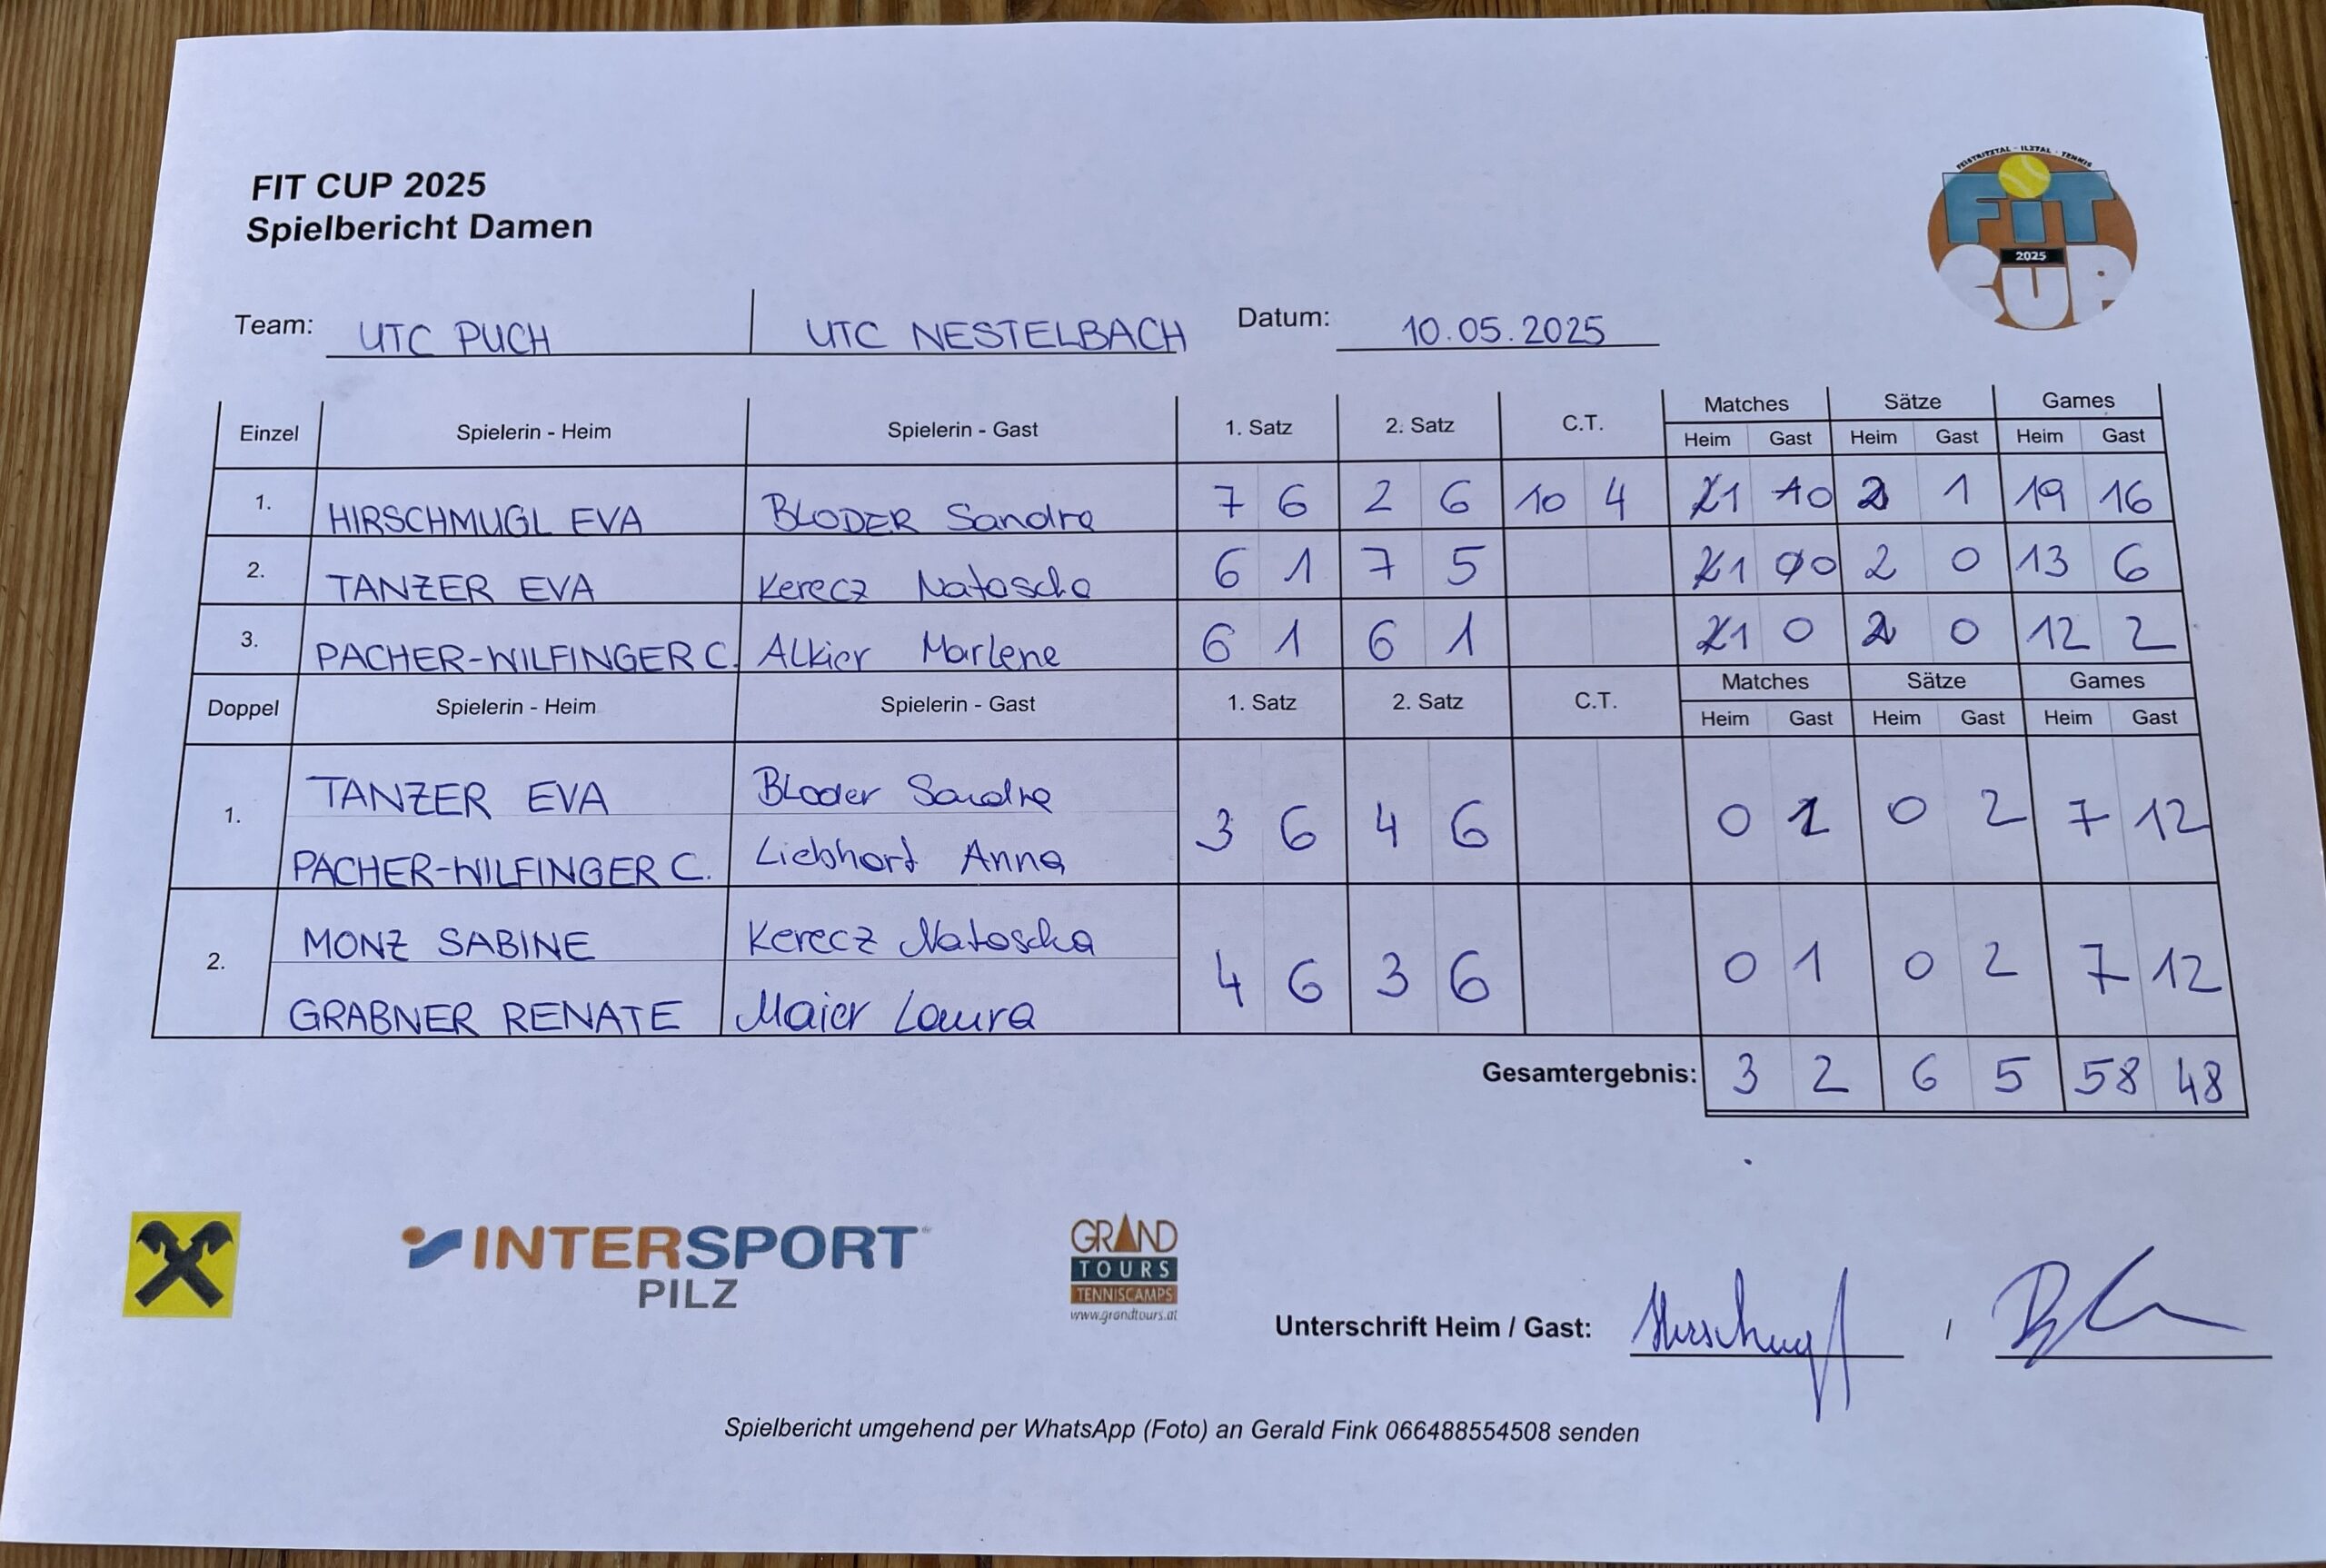 FEISTRITZTAL - ILZTAL - TENNIS
FiT
2025
CUP
FIT CUP 2025
Spielbericht Damen
Team: UTC PUCH UTC NESTELBACH Datum: 10.05.2025
Einzel Spielerin - Heim Spielerin - Gast 1. Satz 2. Satz C.T. Matches Sätze Games
Heim Gast Heim Gast Heim Gast
1. HIRSCHMUGL EVA BLODER Sandra 7 6 2 6 10 4 1 0 2 1 19 16
2. TANZER EVA Kerecz Natascha 6 1 7 5 1 0 2 0 13 6
3. PACHER-WILFINGER C. Alkier Marlene 6 1 6 1 1 0 2 0 12 2
Doppel Spielerin - Heim Spielerin - Gast 1. Satz 2. Satz C.T. Matches Sätze Games
Heim Gast Heim Gast Heim Gast
1. TANZER EVA Bloder Sandra 3 6 4 6 0 1 0 2 7 12
PACHER-WILFINGER C. Liebhart Anna
2. MONZ SABINE Kerecz Natascha 4 6 3 6 0 1 0 2 7 12
GRABNER RENATE Maier Laura
Gesamtergebnis: 3 2 6 5 58 48
INTERSPORT
PILZ
GRAND
TOURS
TENNISCAMPS
www.grandtours.at
Unterschrift Heim / Gast: Hirschmugl ,
Spielbericht umgehend per WhatsApp (Foto) an Gerald Fink 066488554508 senden